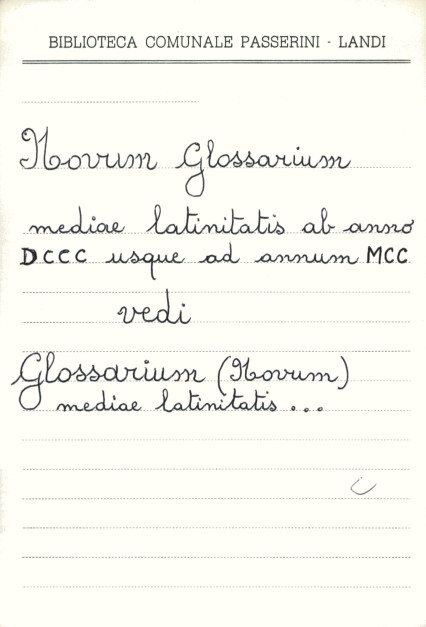 BIBLIOTECA COMUNALE PASSERINI - LANDI
Novum Glossarium
mediae latinitatis ab anno
DCCC usque ad annum MCC
vedi
Glossarium (Novum)
mediae latinitatis ...